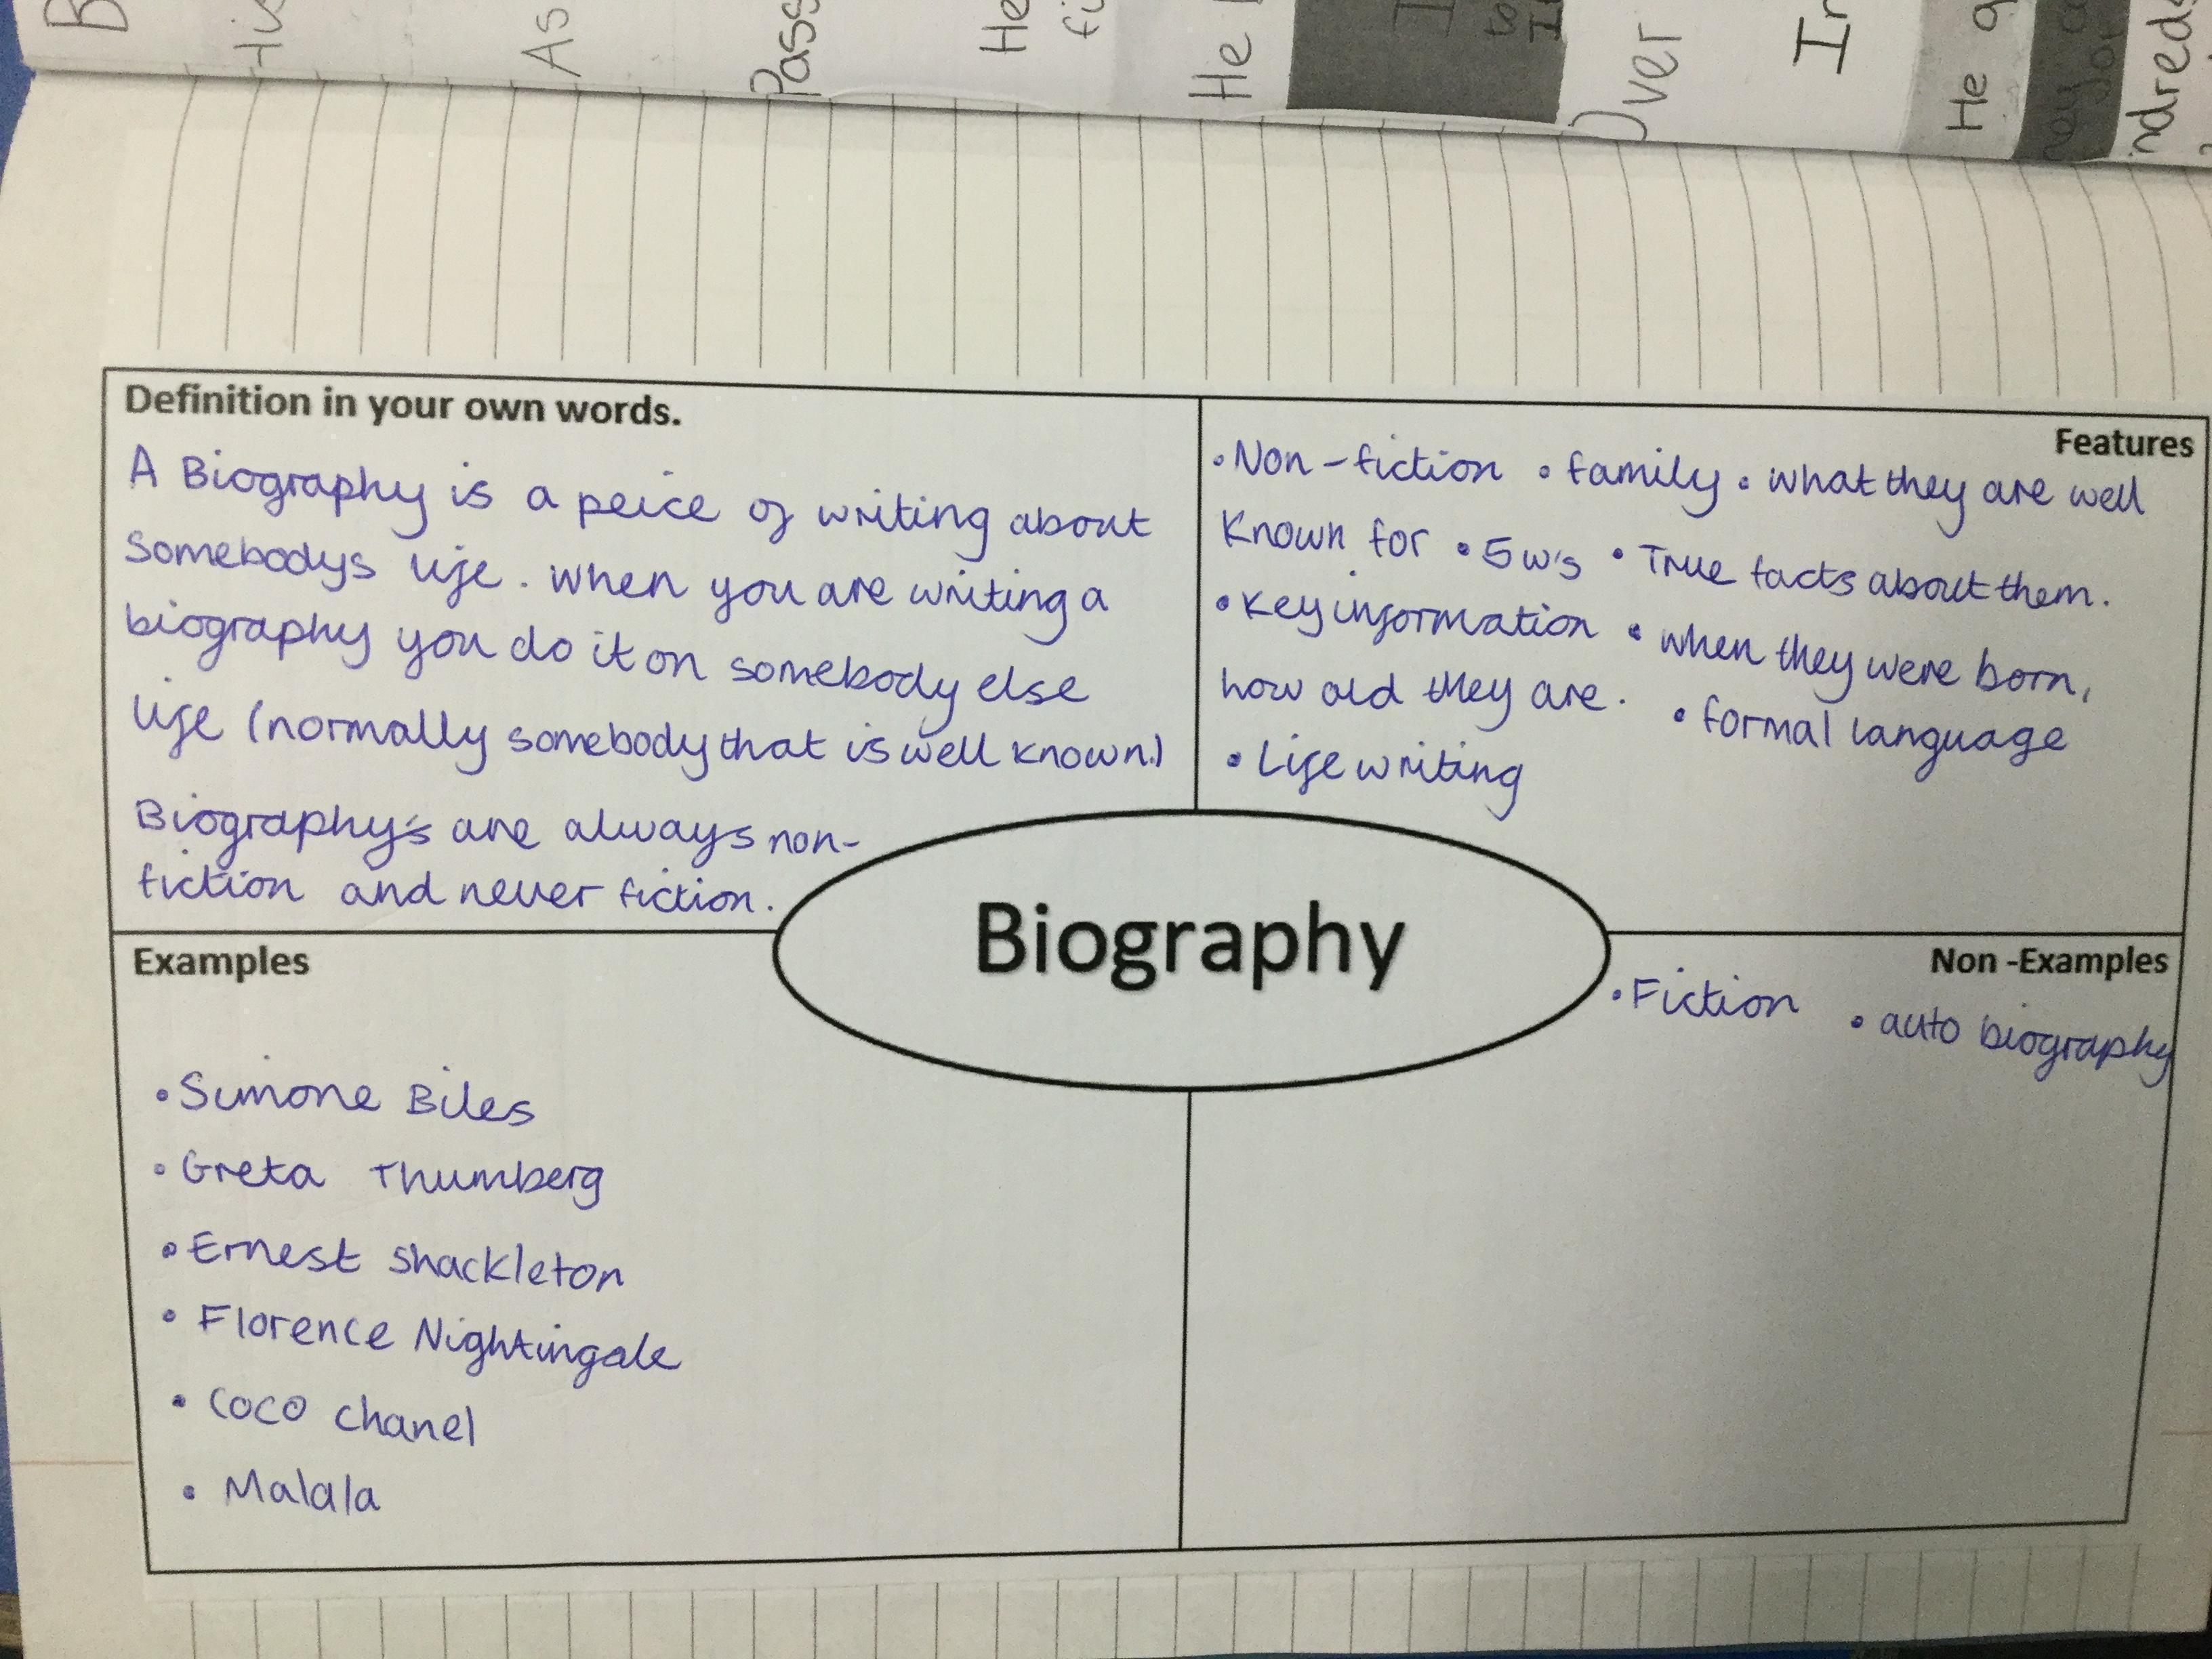 B
His
As
Pass
He
fi
He
I
to
Over
In
He
ndreds
Definition in your own words.
A Biography is a peice of writing about
somebodys life. when you are writing a
biography you do it on somebody else
life (normally somebody that is well known.)
Biography's are always non-
fiction and never fiction.
Features
• Non-fiction • family • what they are well
known for • 5 w's • True facts about them.
• Key information • when they were born,
how old they are. • formal language
• Life writing
Biography
Examples
• Simone Biles
• Greta Thumberg
• Ernest Shackleton
• Florence Nightingale
• Coco chanel
• Malala
Non -Examples
• Fiction • auto biography